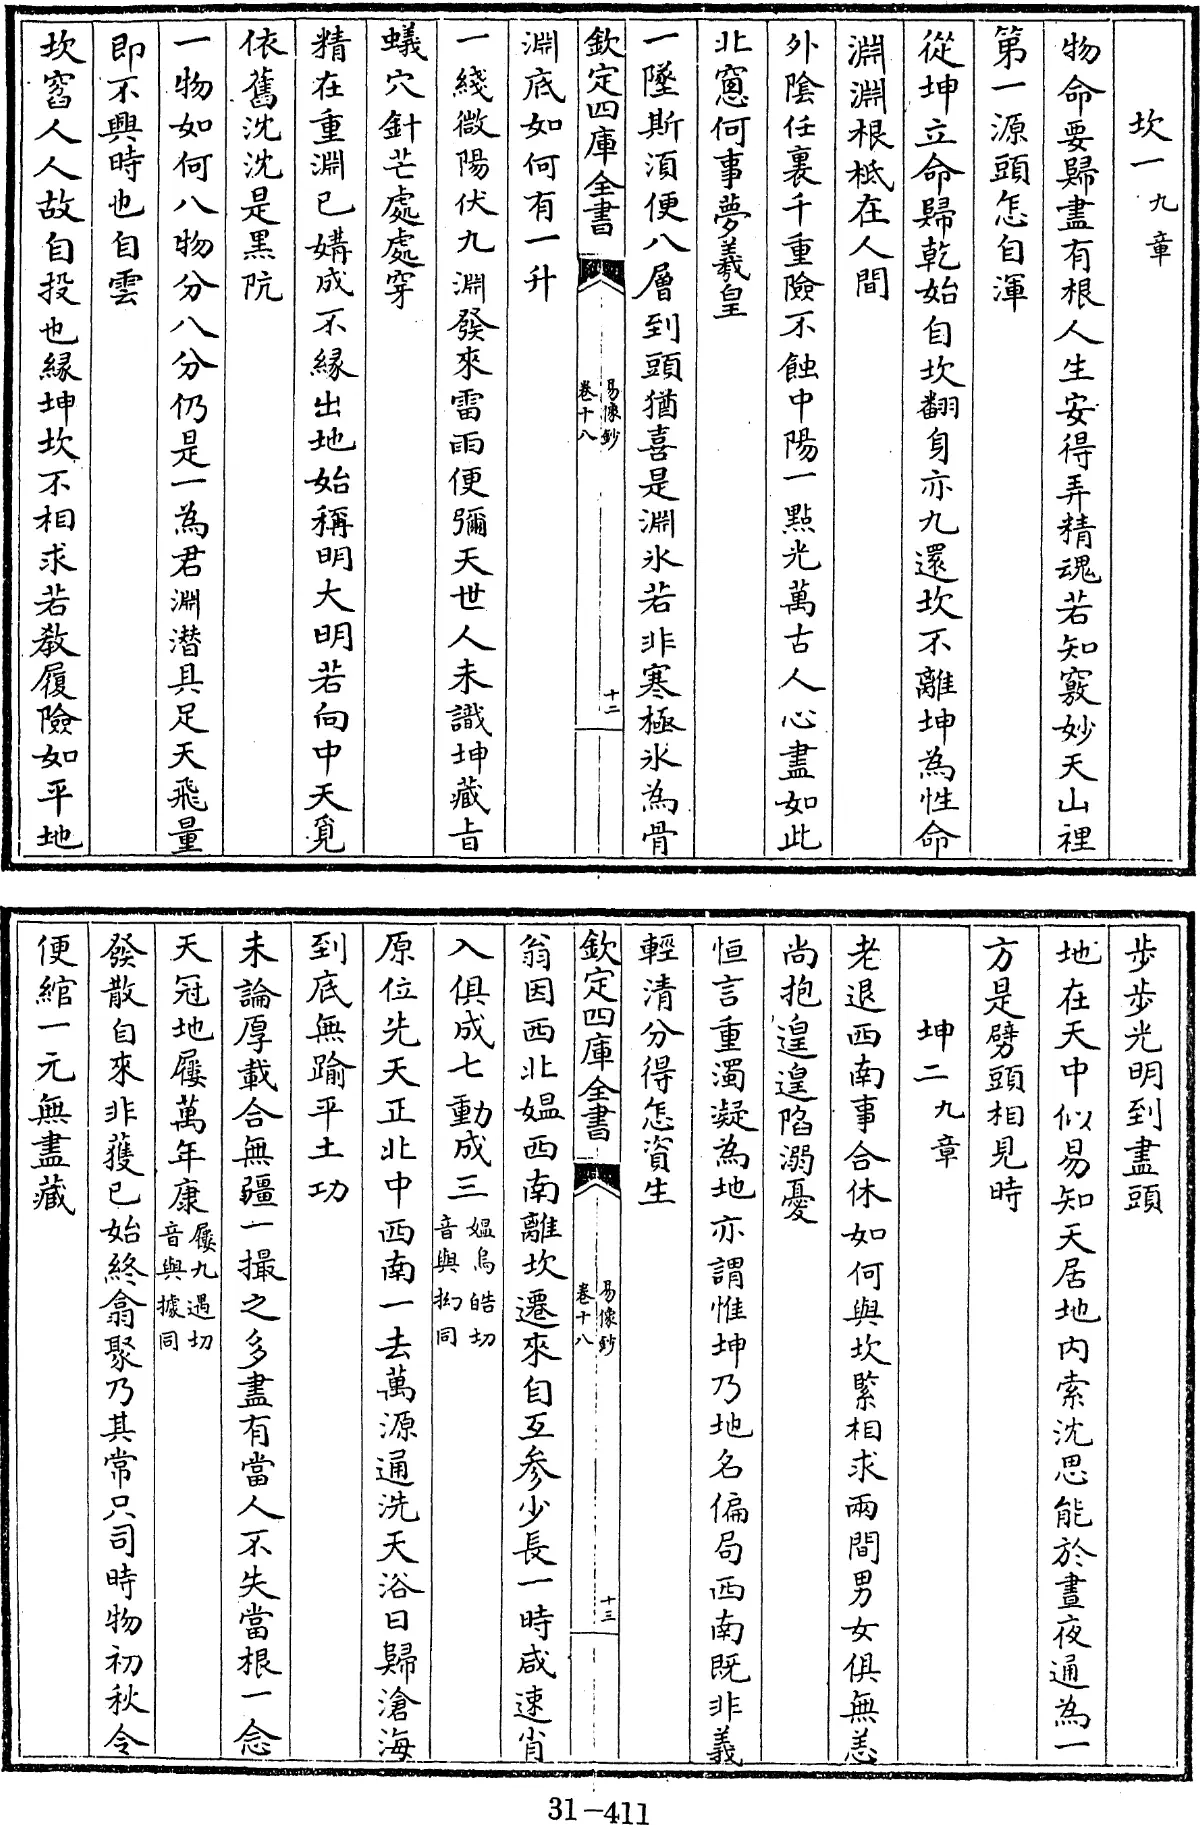 坎一九章
物命要歸盡有根人生安得弄精魂若知竅妙天山裡
第一源頭怎自渾
從坤立命歸乾始自坎翻身亦九還坎不離坤為性命
淵淵根柢在人間
外陰任裏千重險不蝕中陽一點光萬古人心盡如此
北窻何事夢羲皇
一墜斯湏便八層到頭猶喜是淵氷若非寒極氷為骨
欽定四庫全書
易像鈔
卷十八
十二
淵底如何有一升
一綫微陽伏九淵發來雷雨便彌天世人未識坤藏㫖
蟻穴針芒處處穿
精在重淵已媾成不縁出地始稱明大明若向中天覓
依舊沈沈是黒阬
一物如何八物分八分仍是一為君淵潜具足天飛量
即不興時也自雲
坎窞人人故自投也縁坤坎不相求若教履險如平地
步步光明到盡頭
地在天中似易知天居地内索沈思能於晝夜通為一
方是劈頭相見時
坤二九章
老退西南事合休如何與坎緊相求兩間男女俱無恙
尚抱遑遑陷溺憂
恒言重濁凝為地亦謂惟坤乃地名偏局西南既非義
輕清分得怎資生
欽定四庫全書
易像鈔
卷十八
十三
翁因西北媪西南離坎遷來自互参少長一時咸速肖
入俱成七動成三媪烏皓切音與抝同
原位先天正北中西南一去萬源通洗天浴日歸滄海
到底無踰平土功
未論厚載合無疆一撮之多盡有當人不失當根一念
天冠地屨萬年康屨九遇切音與據同
發散自來非獲已始終翕聚乃其常只司時物初秋令
便綰一元無盡藏
31-411